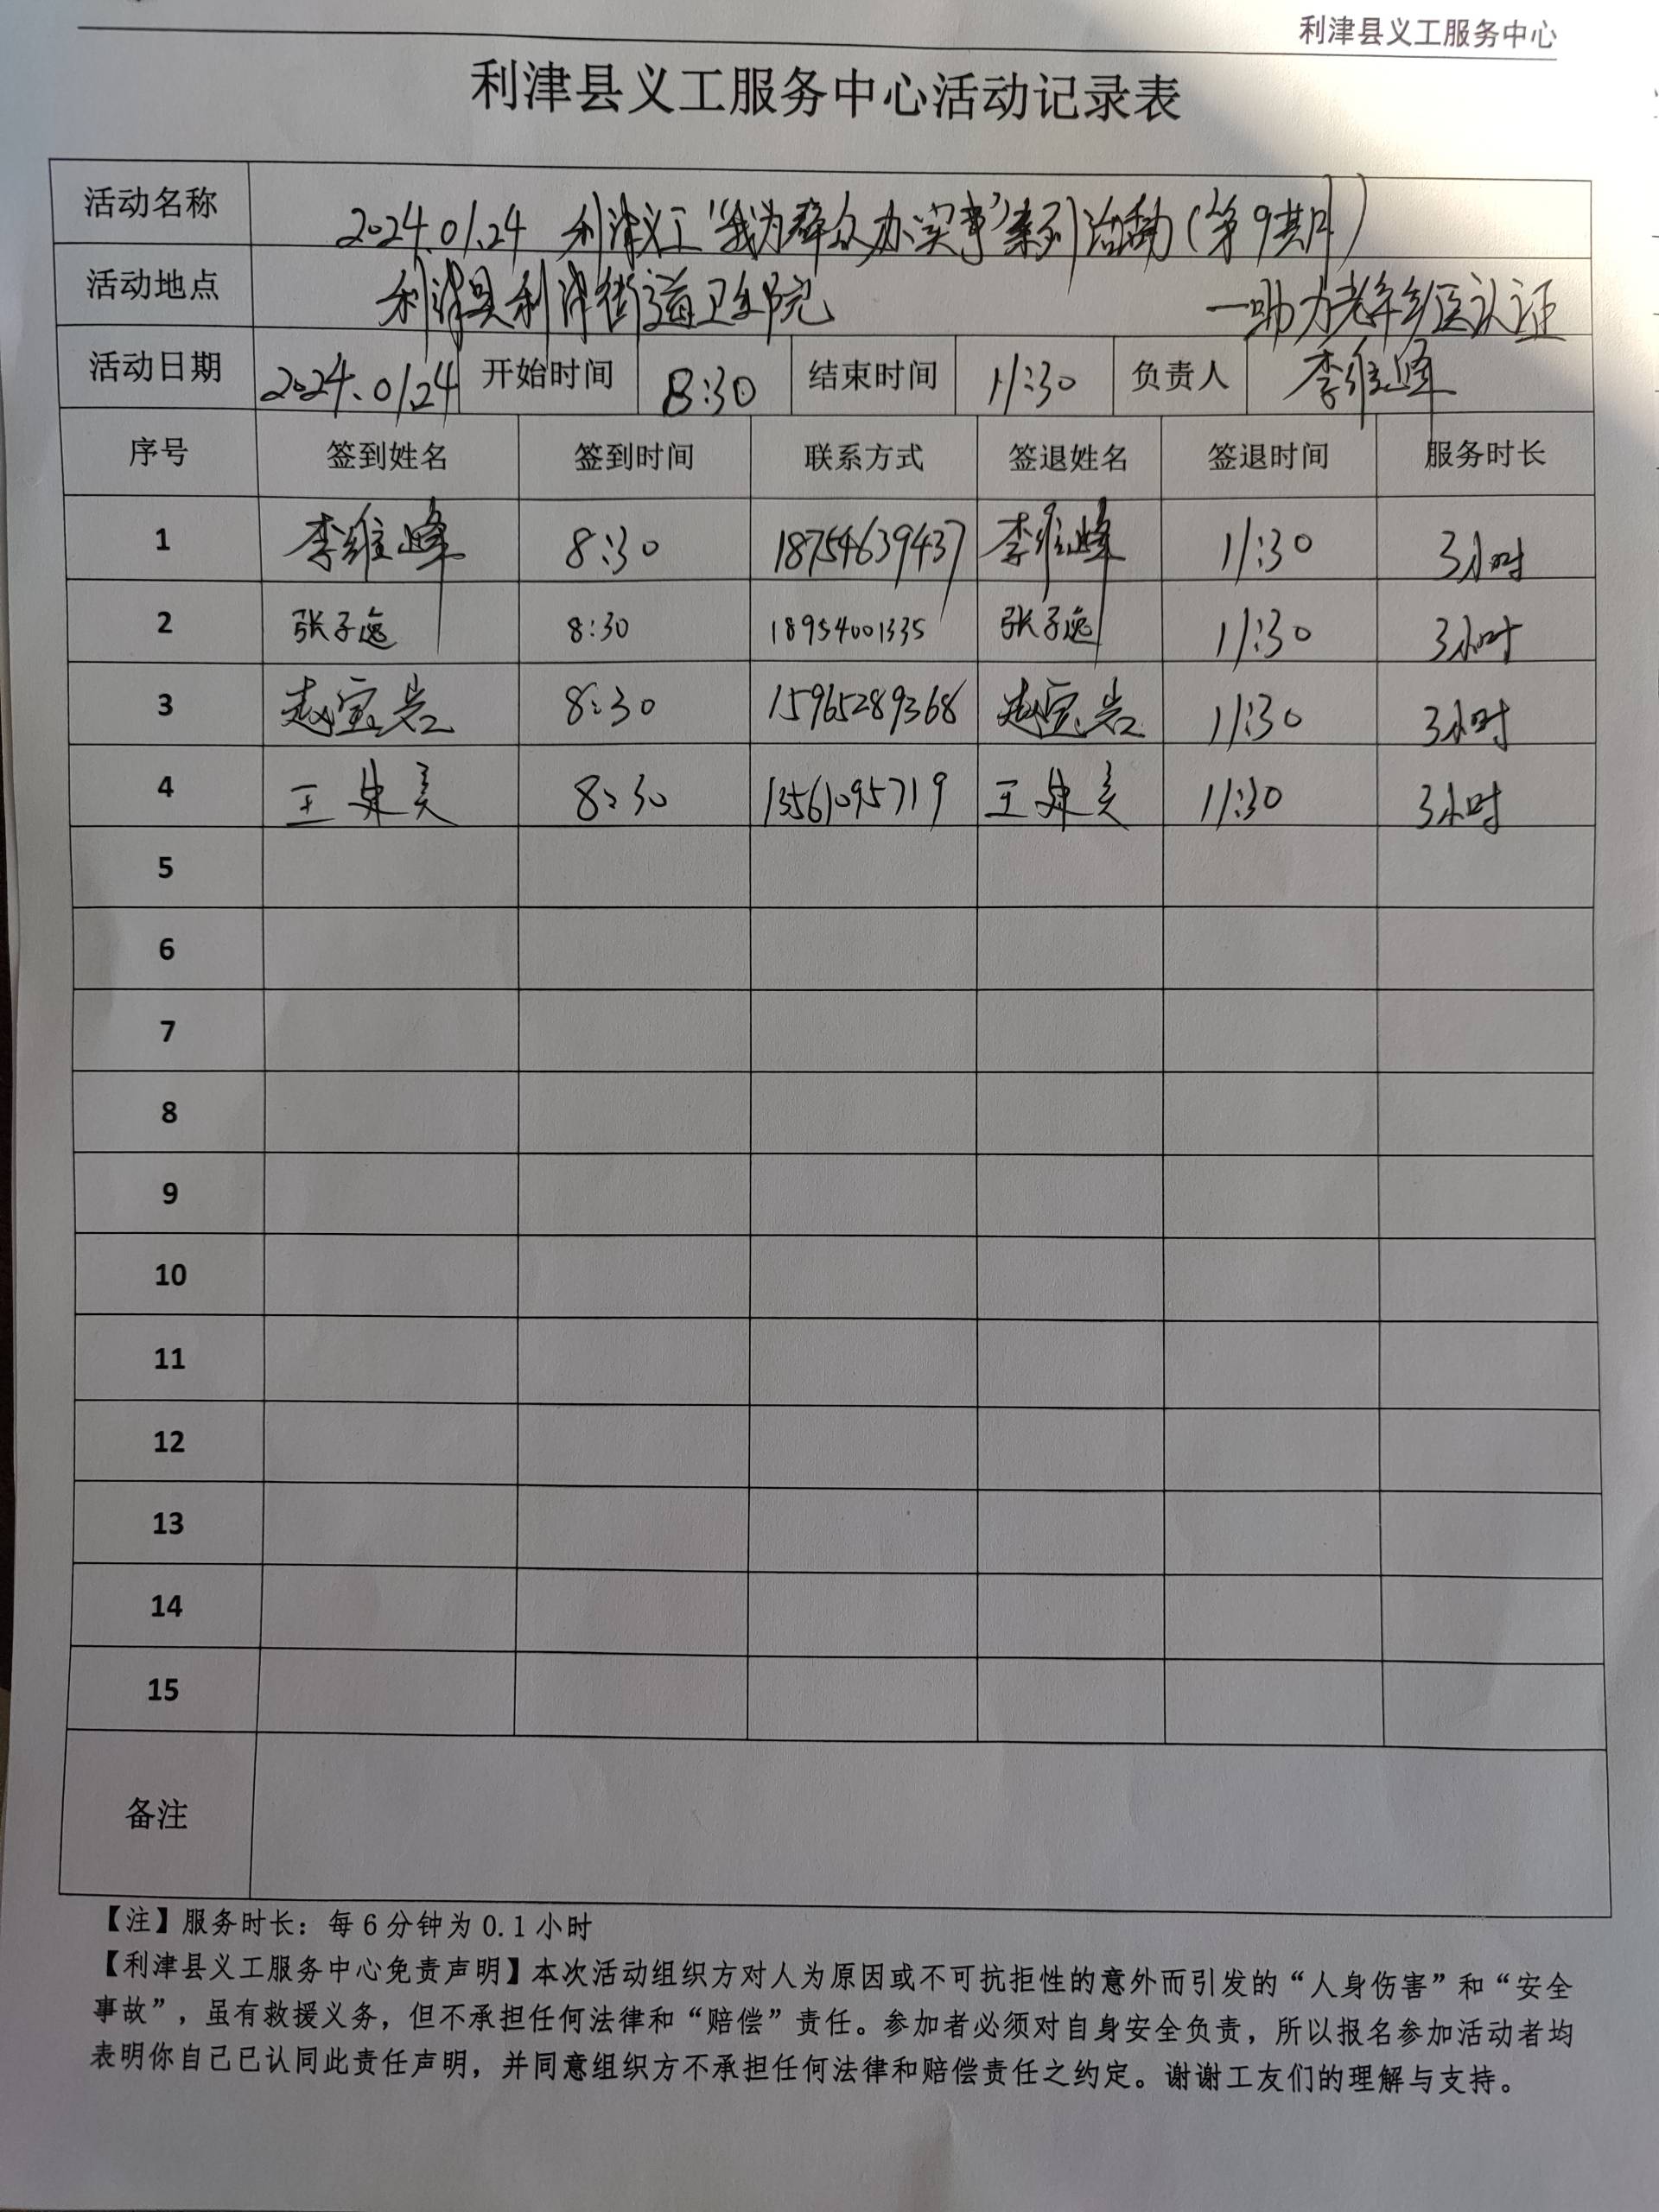 利津县义工服务中心
利津县义工服务中心活动记录表
活动名称 2024.01.24 利津义工“我为群众办实事”系列活动(第9期)
—助力老年乡医认证
活动地点 利津县利津街道卫生院
活动日期 2024.01.24 开始时间 8:30 结束时间 11:30 负责人 李维峰
序号 签到姓名 签到时间 联系方式 签退姓名 签退时间 服务时长
1 李维峰 8:30 18754639437 李维峰 11:30 3小时
2 张子逸 8:30 18954001335 张子逸 11:30 3小时
3 赵宝岩 8:30 15965289368 赵宝岩 11:30 3小时
4 王 美 8:30 13561095719 王 美 11:30 3小时
5
6
7
8
9
10
11
12
13
14
15
备注
【注】服务时长：每6分钟为0.1小时
【利津县义工服务中心免责声明】本次活动组织方对人为原因或不可抗拒性的意外而引发的“人身伤害”和“安全
事故”，虽有救援义务，但不承担任何法律和“赔偿”责任。参加者必须对自身安全负责，所以报名参加活动者均
表明你自己已认同此责任声明，并同意组织方不承担任何法律和赔偿责任之约定。谢谢工友们的理解与支持。